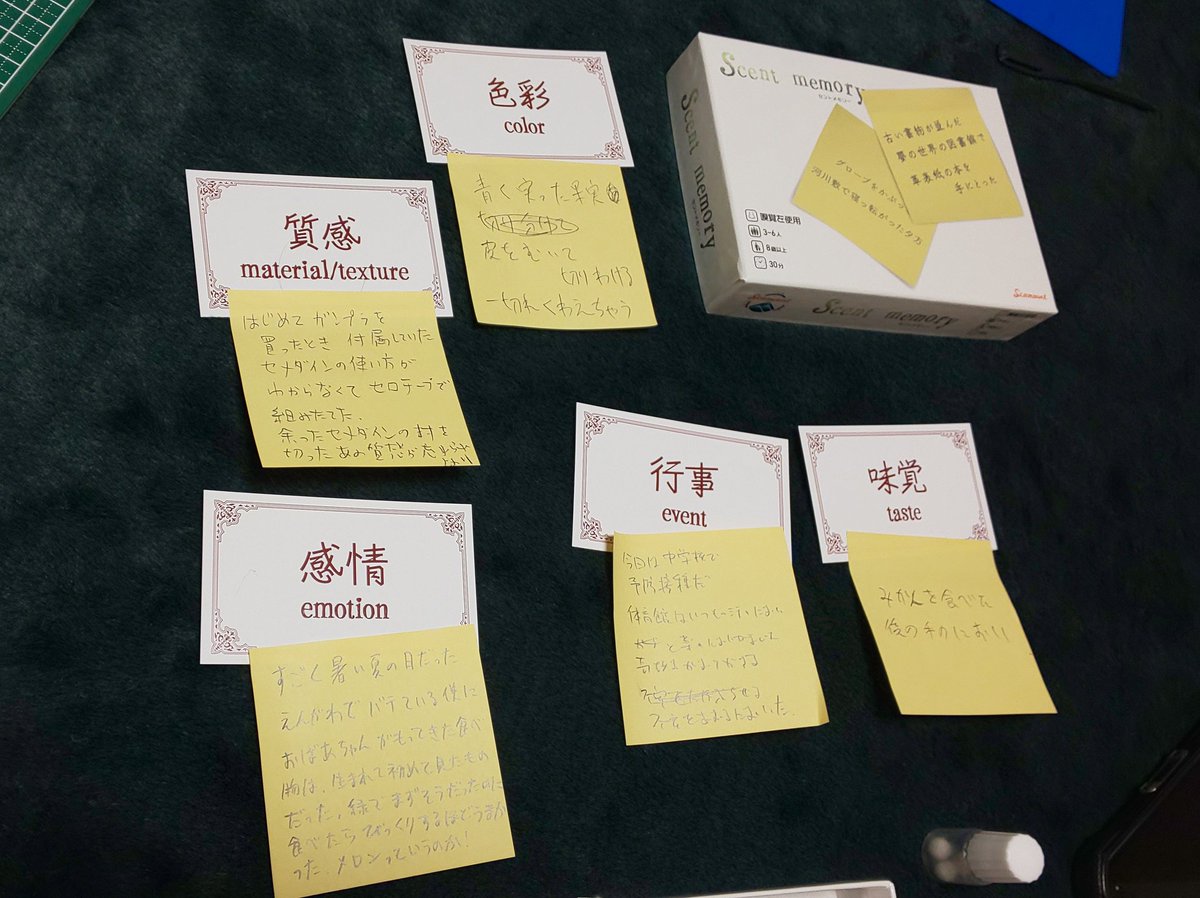 色彩
color
青く実った果実の
皮をむいて
切りわける
一切れくわえちゃう
Scent memory
セントメモリー
古い書物が並んだ
夢の世界の図書館で
革表紙の本を
手にとった
グローブをかぶっ
河川敷で寝っ転がった夕方
嗅覚を使用
3-6人
8歳以上
30分
Scent memory
Scent memory
質感
material/texture
はじめてガンプラを
買ったとき 付属していた
セメダインの使い方が
わからなくて セロテープで
組みたてた.
余ったセメダインの封を
切った あの質感が
感情
emotion
すごく暑い夏の日だった
えんがわで バテている僕に
おばあちゃんがもってきた食べ
物は、生まれて初めて見たもの
だった。緑でまずそうだったのに
食べたら びっくりするほどうまか
った.メロンっていうのか!
行事
event
今日は中学校で
予防接種だ
体育館はいつもの汗のにおい
味覚
taste
みかんを食べた
後の手のにおい